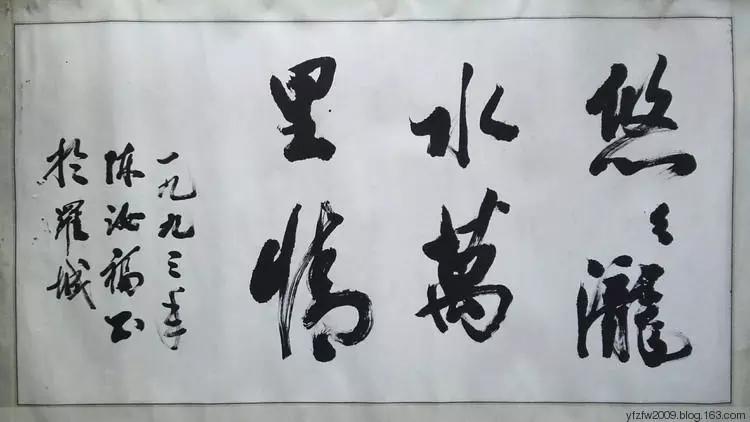 悠々瀧
水萬
里情
一九九三年
陈汝福书
於羅城
yfzfw2009.blog.163.com